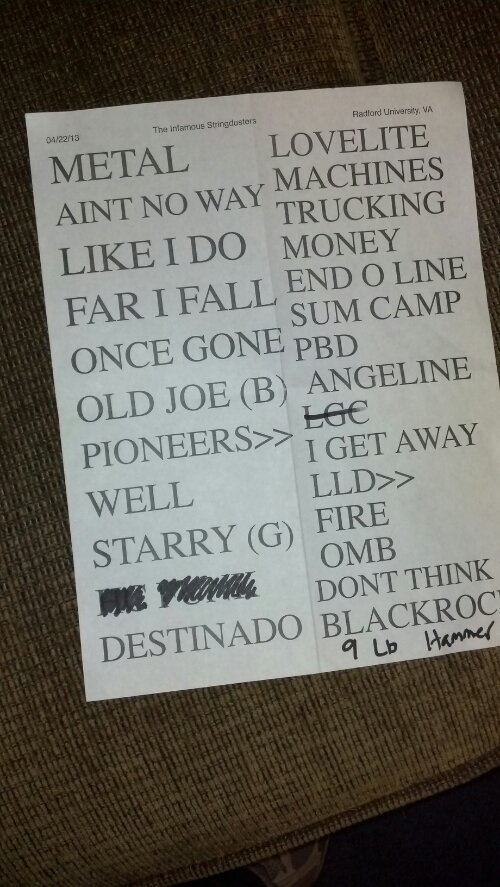 04/22/13
The Infamous Stringdusters
Radford University, VA
METAL
AINT NO WAY
LIKE I DO
FAR I FALL
ONCE GONE
OLD JOE (B)
PIONEERS>>
WELL
STARRY (G)
DESTINADO
LOVELITE
MACHINES
TRUCKING
MONEY
END O LINE
SUM CAMP
PBD
ANGELINE
LGC
I GET AWAY
LLD>>
FIRE
OMB
DONT THINK
BLACKROC
9 Lb Hammer